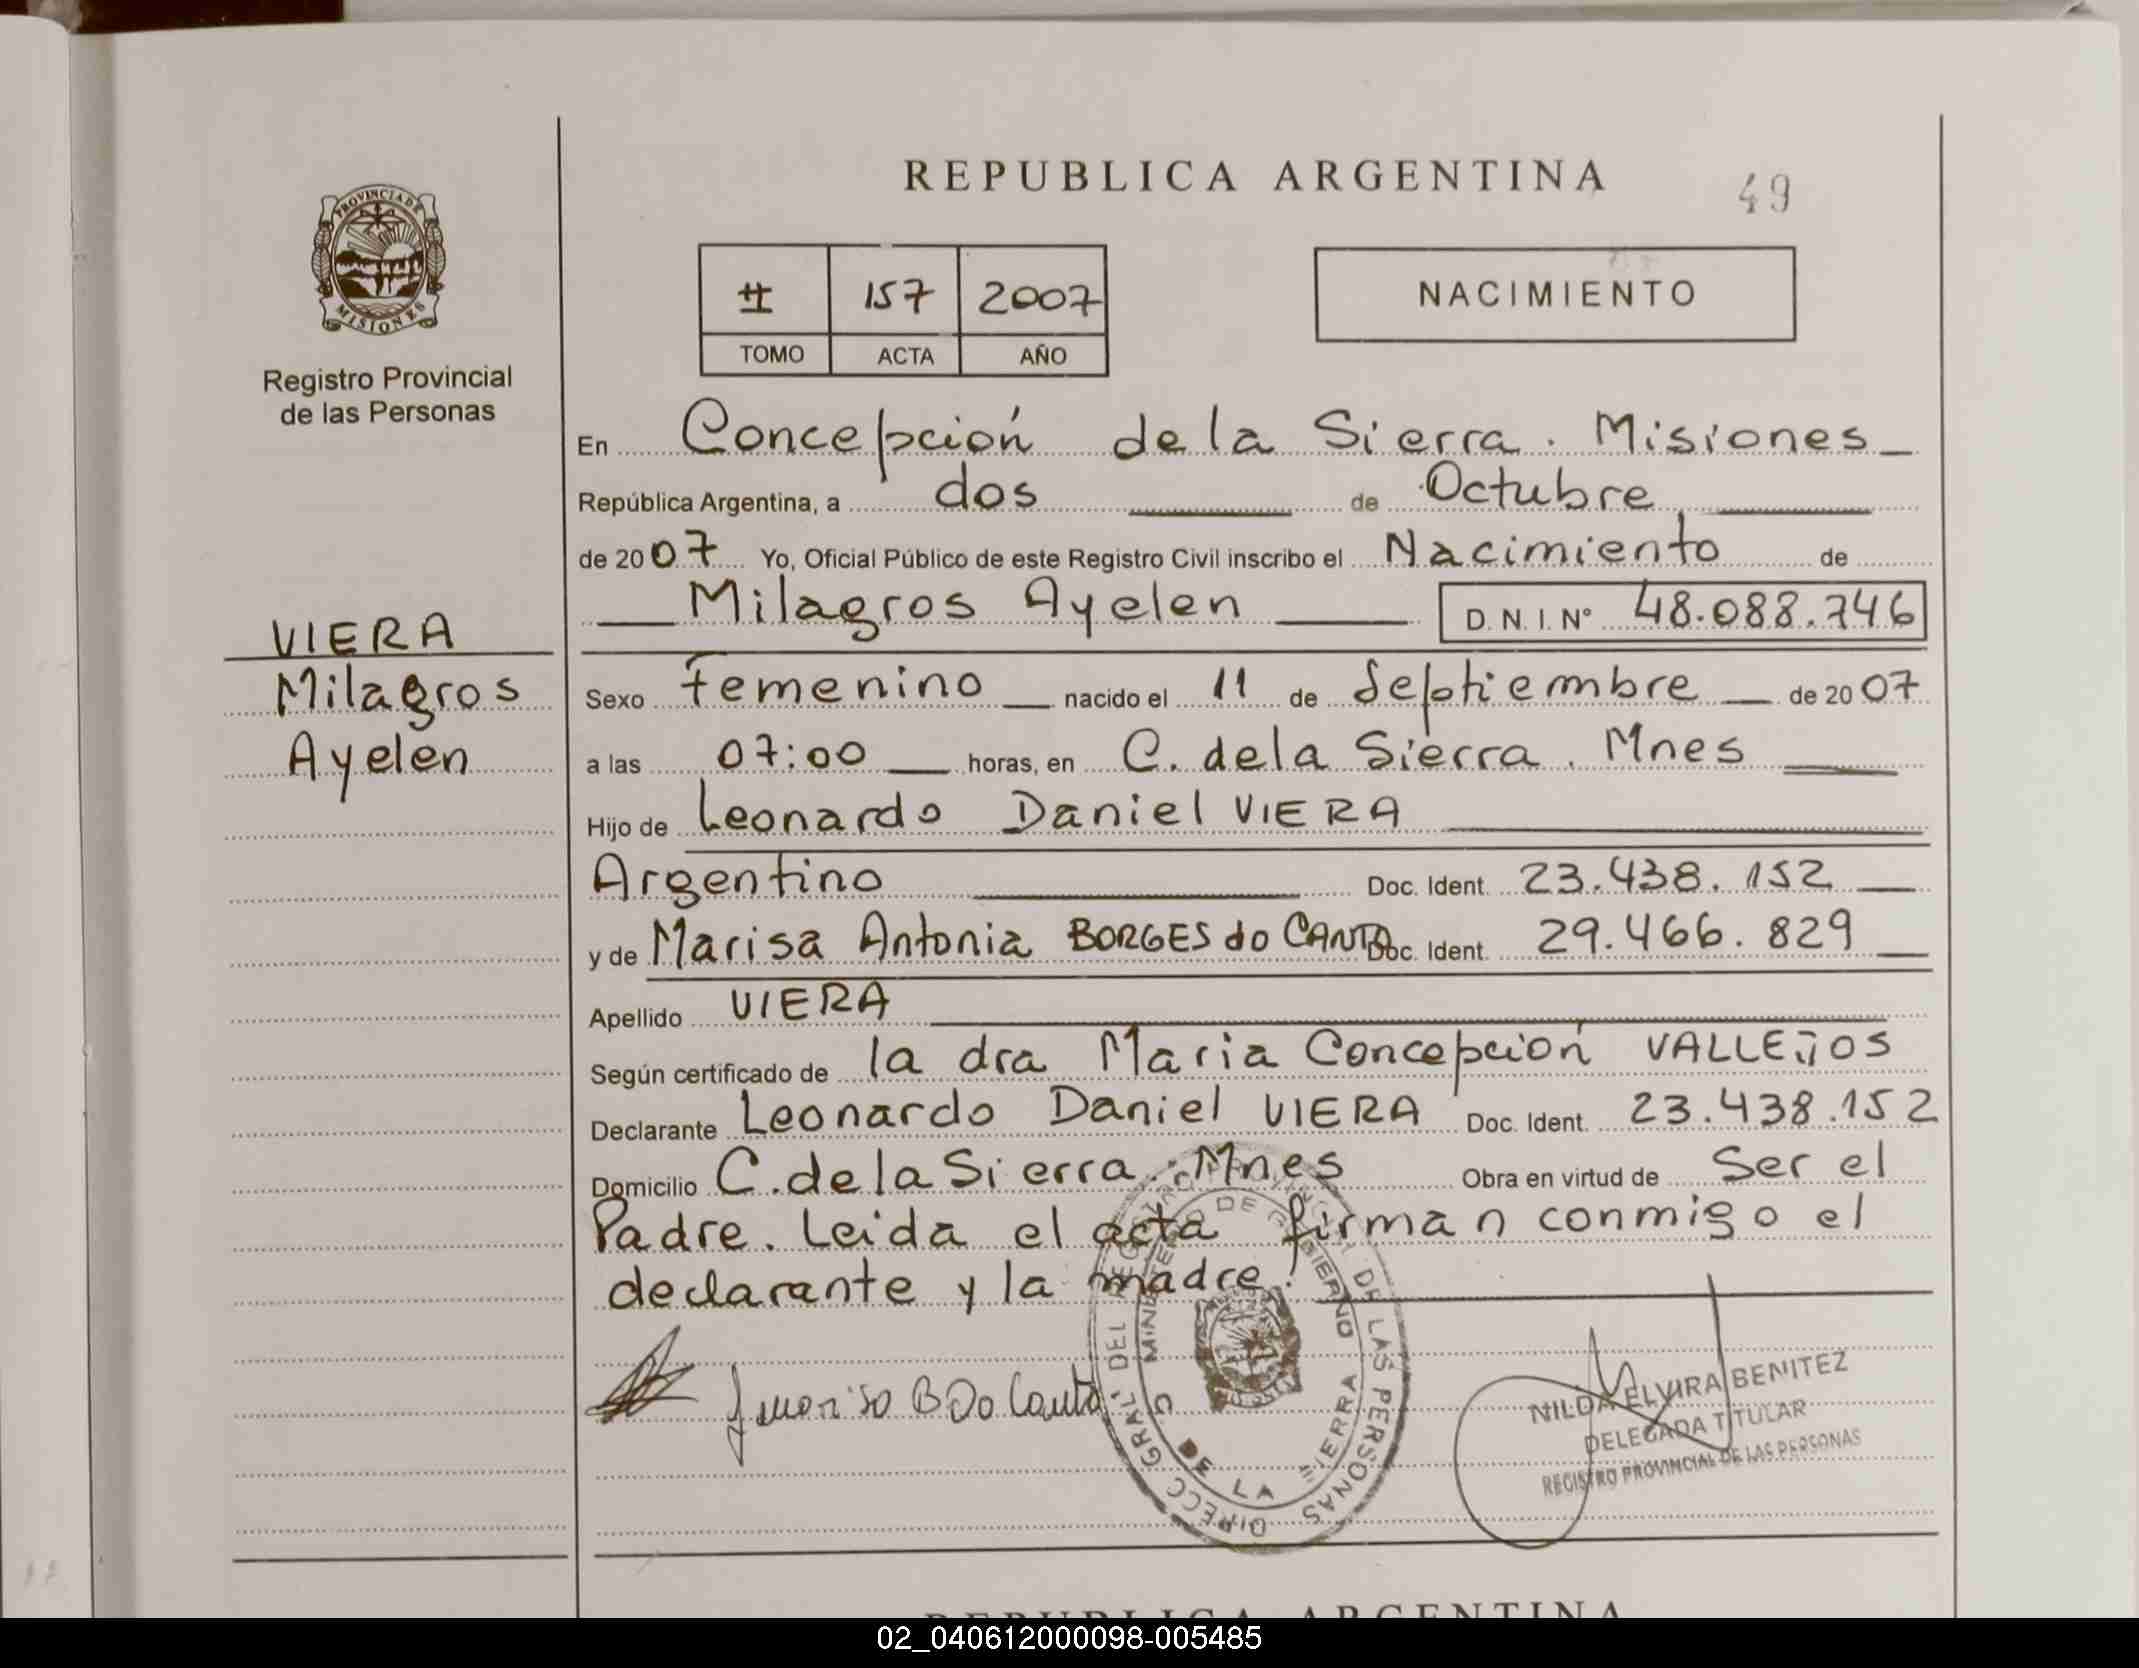 REPUBLICA ARGENTINA
49
PROVINCIA DE
MISIONES
Registro Provincial
de las Personas
II 157 2007
TOMO ACTA AÑO
NACIMIENTO
En Concepción de la Sierra. Misiones
República Argentina, a dos de Octubre
de 2007 Yo, Oficial Público de este Registro Civil inscribo el Nacimiento de
Milagros Ayelen D.N.I.Nº 48.088.746
VIERA
Milagros
Ayelen
Sexo Femenino nacido el 11 de Septiembre de 2007
a las 07:00 horas, en C. de la Sierra. Mnes
Hijo de Leonardo Daniel VIERA
Argentino Doc. Ident. 23.438.152
y de Marisa Antonia BORGES do CANTO Doc. Ident. 29.466.829
Apellido VIERA
Según certificado de la dra Maria Concepción VALLEJOS
Declarante Leonardo Daniel VIERA Doc. Ident. 23.438.152
Domicilio C. de la Sierra. Mnes Obra en virtud de Ser el
Padre. Leida el acta firman conmigo el
declarante y la madre.
B Do Canto
DIRECC GRAL DEL REGISTRO PROVINCIAL DE LAS PERSONAS
MINISTERIO DE GOBIERNO
C. DE LA SIERRA
NILDA ELVIRA BENITEZ
DELEGADA TITULAR
REGISTRO PROVINCIAL DE LAS PERSONAS
REPUBLICA ARGENTINA
02_040612000098-005485